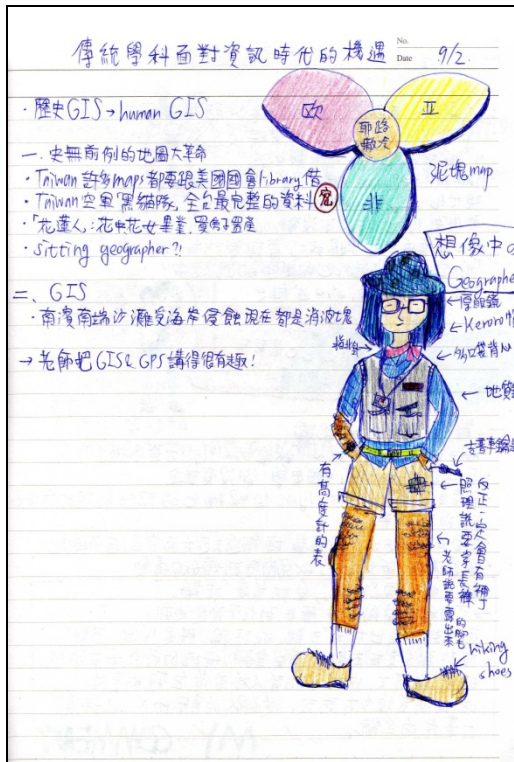 傳統學科面對資訊時代的機遇
No.
Date 9/2.
歐
亞
耶路撒冷
非
泥塊map
· 歷史GIS → human GIS
一. 史無前例的地圖大革命
· Taiwan 許多maps都要跟美國國會library借
· Taiwan空軍「黑貓隊」全台最完整的資料
· 「花蓮人: 花中花女畢業,
· sitting geographer?!
二、GIS
· 南濱南端沙灘受海岸侵蝕現在都是消波塊
→ 老師把GIS& GPS講得很有趣!
想像中の
Geographe
← 厚眼鏡
← Keroro帽
← 多口袋背心
← 地質
有高度計的表
反正一定會有補丁
照理說要穿長褲
老師說要露出來
的腳毛
hiking
shoes